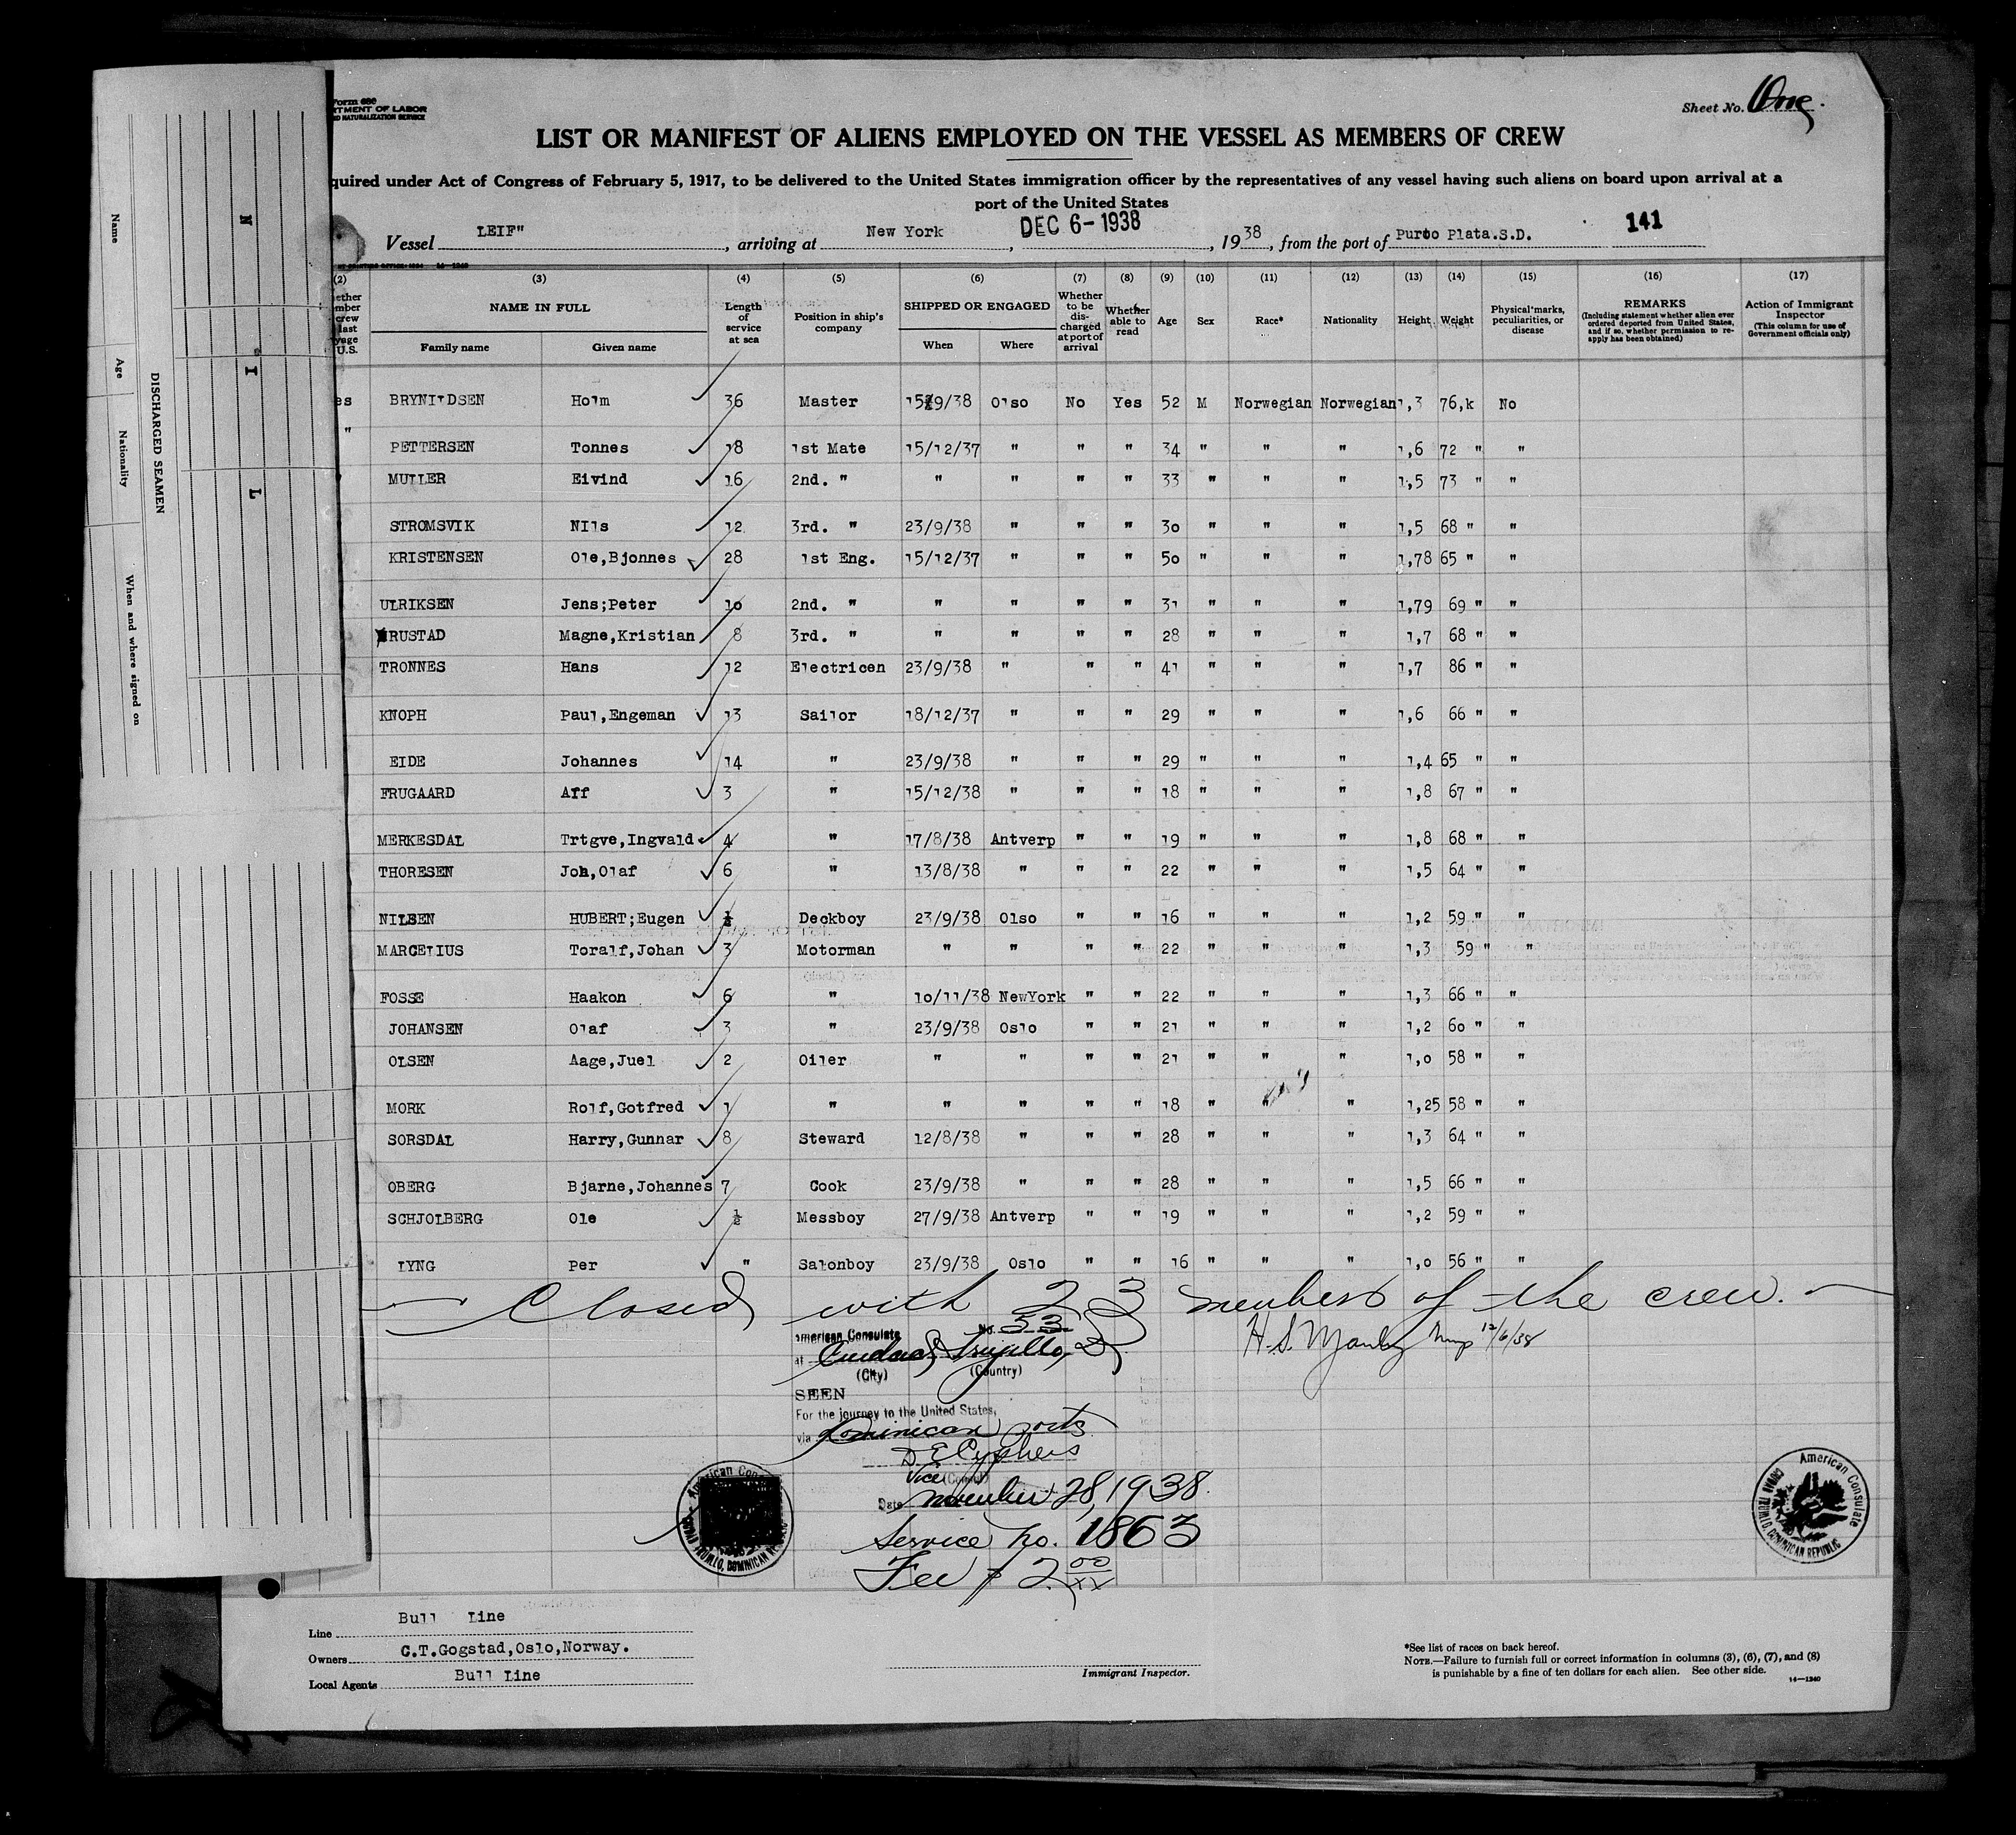 Form 680
RTMENT OF LABOR
ND NATURALIZATION SERVICE
Sheet No. One.
LIST OR MANIFEST OF ALIENS EMPLOYED ON THE VESSEL AS MEMBERS OF CREW
quired under Act of Congress of February 5, 1917, to be delivered to the United States immigration officer by the representatives of any vessel having such aliens on board upon arrival at a
port of the United States
Vessel LEIF", arriving at New York, DEC 6-1938, 1938, from the port of Purto Plata.S.D. 141
(2) (3) (4) (5) (6) (7) (8) (9) (10) (11) (12) (13) (14) (15) (16) (17)
NAME IN FULL Length of service at sea Position in ship's company SHIPPED OR ENGAGED Whether to be discharged at port of arrival Whether able to read Age Sex Race* Nationality Height Weight Physical marks, peculiarities, or disease REMARKS (Including statement whether alien ever ordered deported from United States, and if so, whether permission to reapply has been obtained) Action of Immigrant Inspector (This column for use of Government officials only)
Family name Given name When Where
es BRYNILDSEN Holm 36 Master 15/9/38 Olso No Yes 52 M Norwegian Norwegian 1,3 76,k No
" PETTERSEN Tonnes 18 1st Mate 15/12/37 " " " 34 " " " 1,6 72 " "
MULLER Eivind 16 2nd. " " " " " 33 " " " 1,5 73 " "
STROMSVIK NIls 12 3rd. " 23/9/38 " " " 30 " " " 1,5 68 " "
KRISTENSEN Ole,Bjonnes 28 1st Eng. 15/12/37 " " " 50 " " " 1,78 65 " "
ULRIKSEN Jens;Peter 10 2nd. " " " " " 31 " " " 1,79 69 " "
RUSTAD Magne,Kristian 8 3rd. " " " " " 28 " " " 1,7 68 " "
TRONNES Hans 12 Electricen 23/9/38 " " " 41 " " " 1,7 86 " "
KNOPH Paul,Engeman 13 Sailor 18/12/37 " " " 29 " " " 1,6 66 " "
EIDE Johannes 14 " 23/9/38 " " " 29 " " " 1,4 65 " "
FRUGAARD Alf 3 " 15/12/38 " " " 18 " " " 1,8 67 " "
MERKESDAL Trtgve,Ingvald 4 " 17/8/38 Antverp " " 19 " " " 1,8 68 " "
THORESEN Joh,Olaf 6 " 13/8/38 " " " 22 " " " 1,5 64 " "
NILSEN HUBERT;Eugen ½ Deckboy 23/9/38 Olso " " 16 " " " 1,2 59 " "
MARCELIUS Toralf,Johan 3 Motorman " " " " 22 " " " 1,3 59 " "
FOSSE Haakon 6 " 10/11/38 NewYork " " 22 " " " 1,3 66 " "
JOHANSEN Olaf 3 " 23/9/38 Oslo " " 21 " " " 1,2 60 " "
OLSEN Aage,Juel 2 Oiler " " " " 21 " " " 1,0 58 " "
MORK Rolf,Gotfred 1 " " " " " 18 " " " 1,25 58 " "
SORSDAL Harry,Gunnar 8 Steward 12/8/38 " " " 28 " " " 1,3 64 " "
OBERG Bjarne,Johannes 7 Cook 23/9/38 " " " 28 " " " 1,5 66 " "
SCHJOLBERG Ole ½ Messboy 27/9/38 Antverp " " 19 " " " 1,2 59 " "
LYNG Per " Salonboy 23/9/38 Oslo " " 16 " " " 1,0 56 " "
Closed with 23 members of the crew.
American Consulate No. 53
at Ciudad Trujillo, D.R.
(City) (Country)
H.S. Manley Insp 12/6/38
SEEN
For the journey to the United States,
via Dominican ports
D E Cyphers
Vice (Consul)
Date November 28, 1938.
Service No. 1863
Fee $ 2 00/xx
American Consulate
CIUDAD TRUJILLO, DOMINICAN REPUBLIC
American Consulate
CIUDAD TRUJILLO, DOMINICAN REPUBLIC
Line Bull Line
Owners C.T.Gogstad,Oslo,Norway.
Local Agents Bull Line
Immigrant Inspector.
*See list of races on back hereof.
NOTE.—Failure to furnish full or correct information in columns (3), (6), (7), and (8)
is punishable by a fine of ten dollars for each alien. See other side.
14—1240
DISCHARGED SEAMEN
Name Age Nationality When and where signed on
N I L